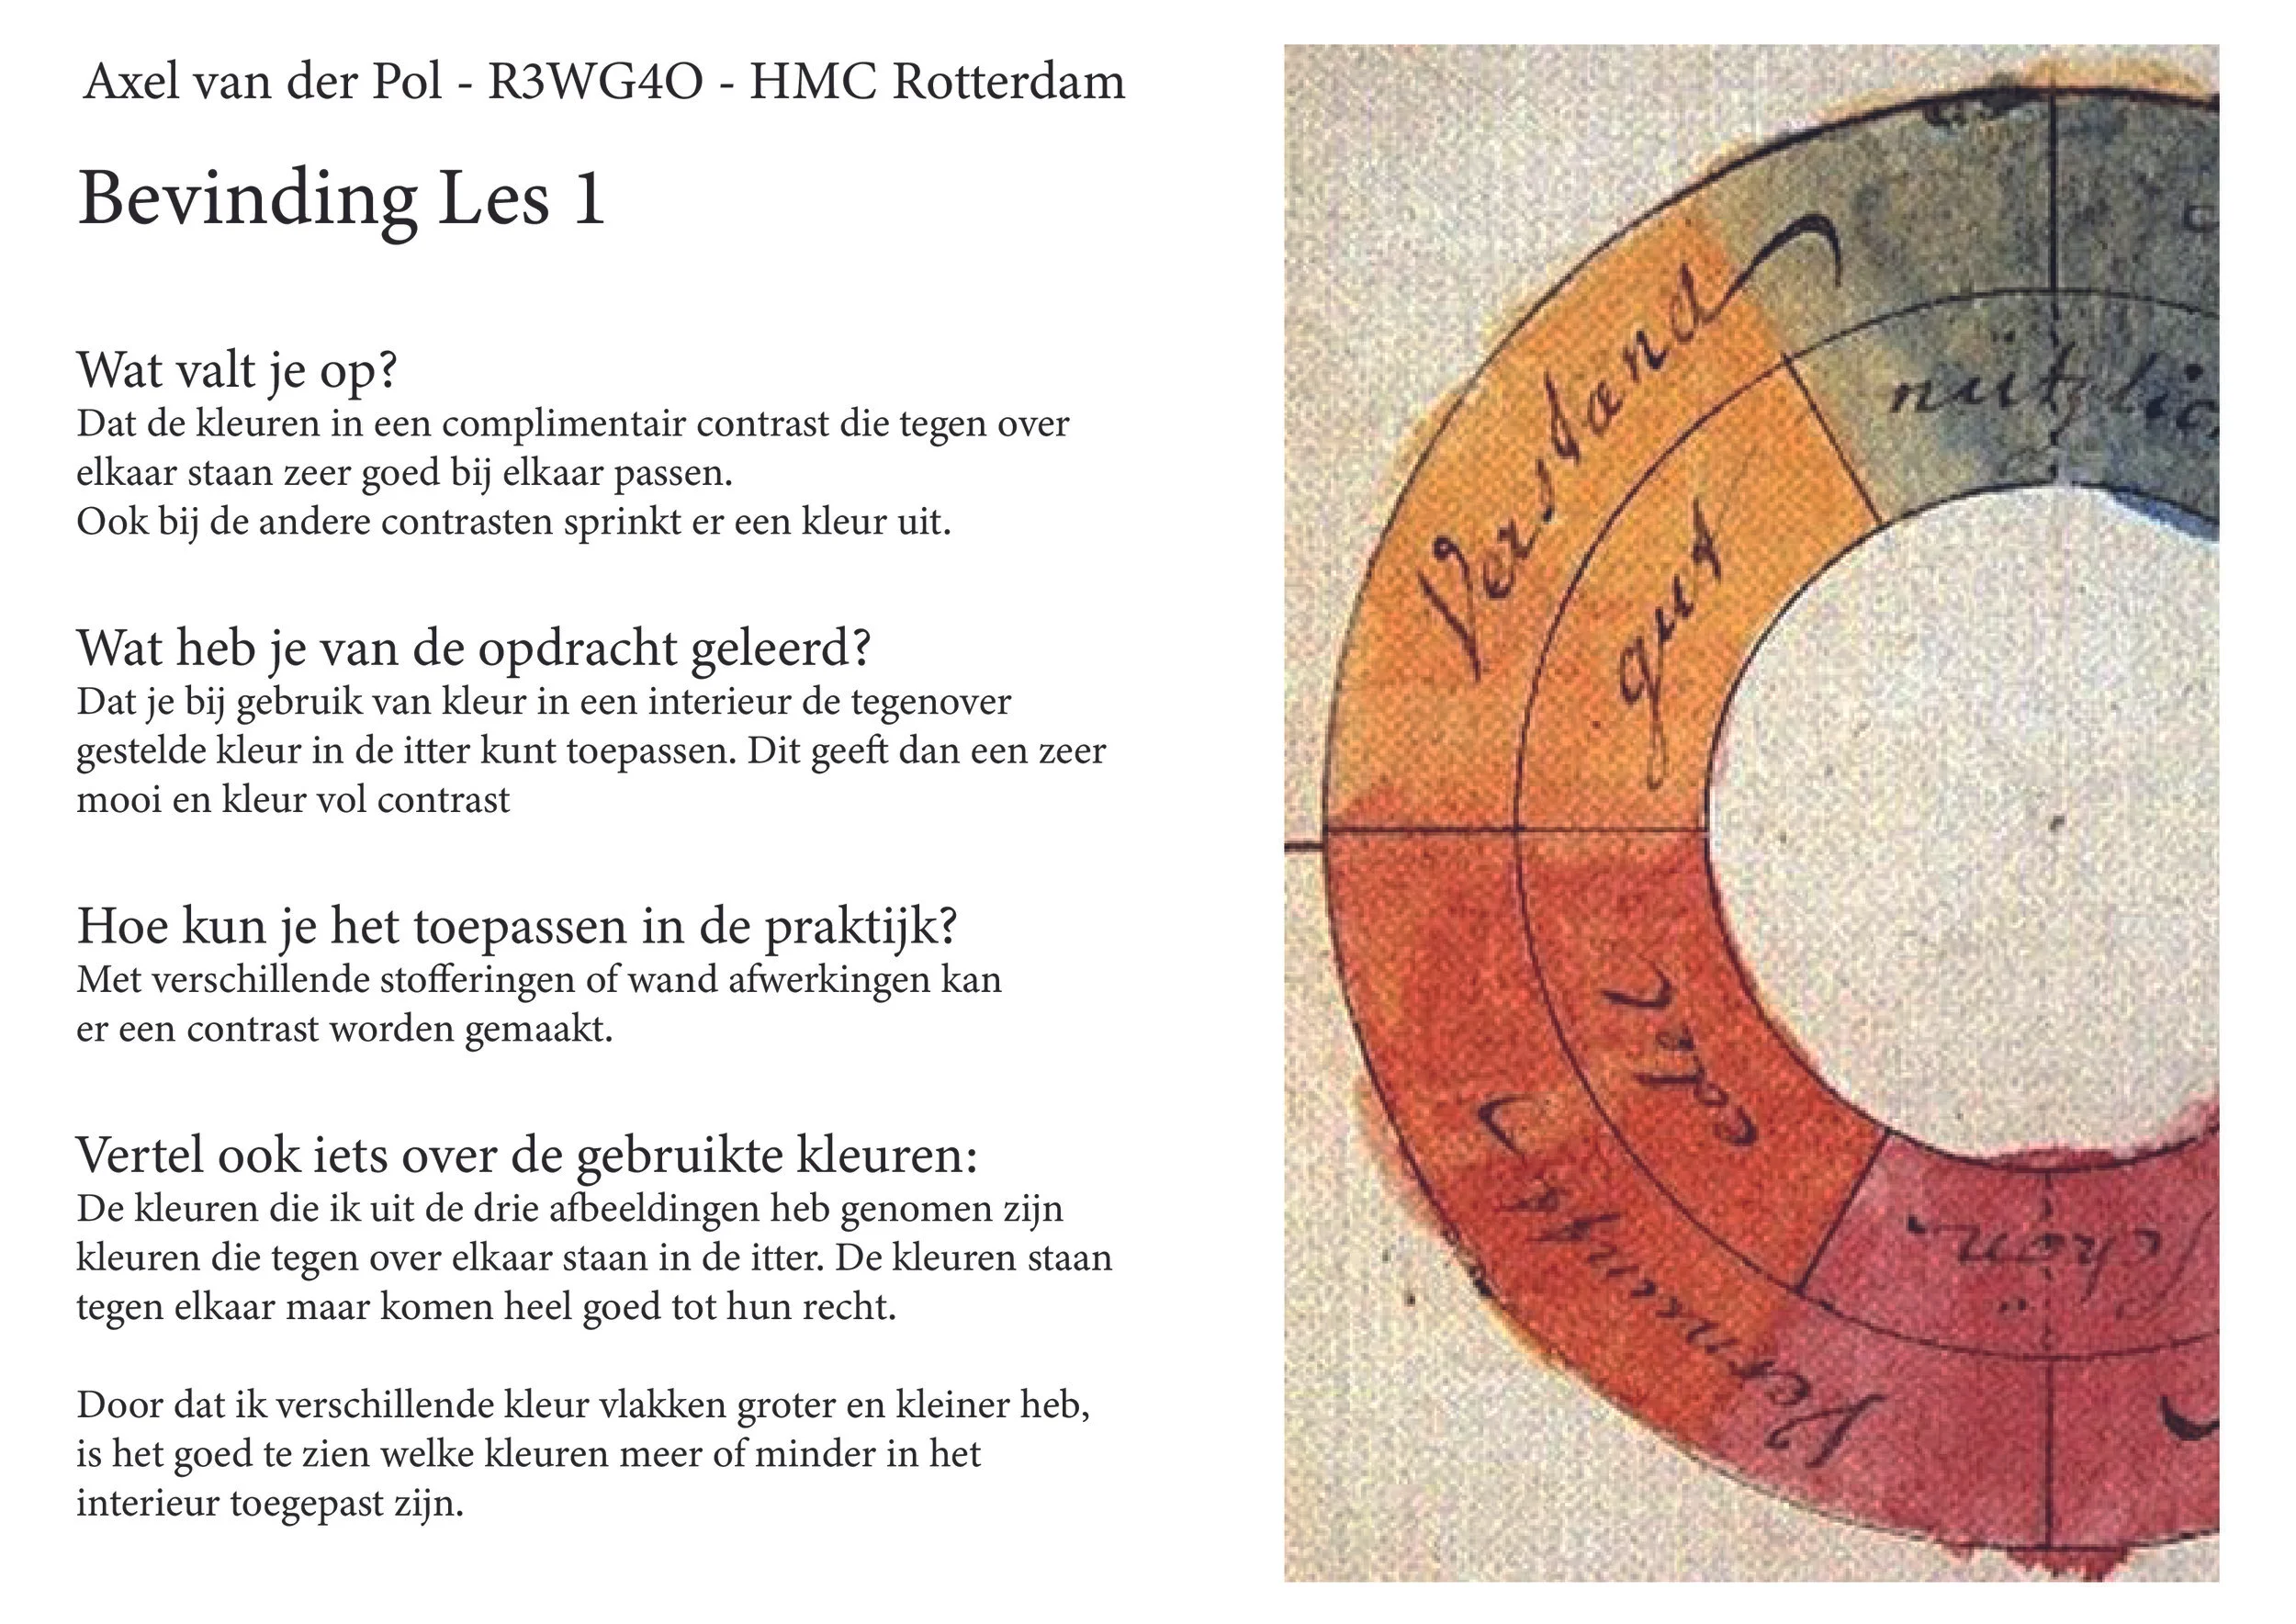 Axel van der Pol - R3WG4O - HMC Rotterdam
Bevinding Les 1
Wat valt je op?
Dat de kleuren in een complimentair contrast die tegen over
elkaar staan zeer goed bij elkaar passen.
Ook bij de andere contrasten sprinkt er een kleur uit.
Wat heb je van de opdracht geleerd?
Dat je bij gebruik van kleur in een interieur de tegenover
gestelde kleur in de itter kunt toepassen. Dit geeft dan een zeer
mooi en kleur vol contrast
Hoe kun je het toepassen in de praktijk?
Met verschillende stofferingen of wand afwerkingen kan
er een contrast worden gemaakt.
Vertel ook iets over de gebruikte kleuren:
De kleuren die ik uit de drie afbeeldingen heb genomen zijn
kleuren die tegen over elkaar staan in de itter. De kleuren staan
tegen elkaar maar komen heel goed tot hun recht.
Door dat ik verschillende kleur vlakken groter en kleiner heb,
is het goed te zien welke kleuren meer of minder in het
interieur toegepast zijn.
Verstand
nützlic
gut
edel
Vernunft
schön.